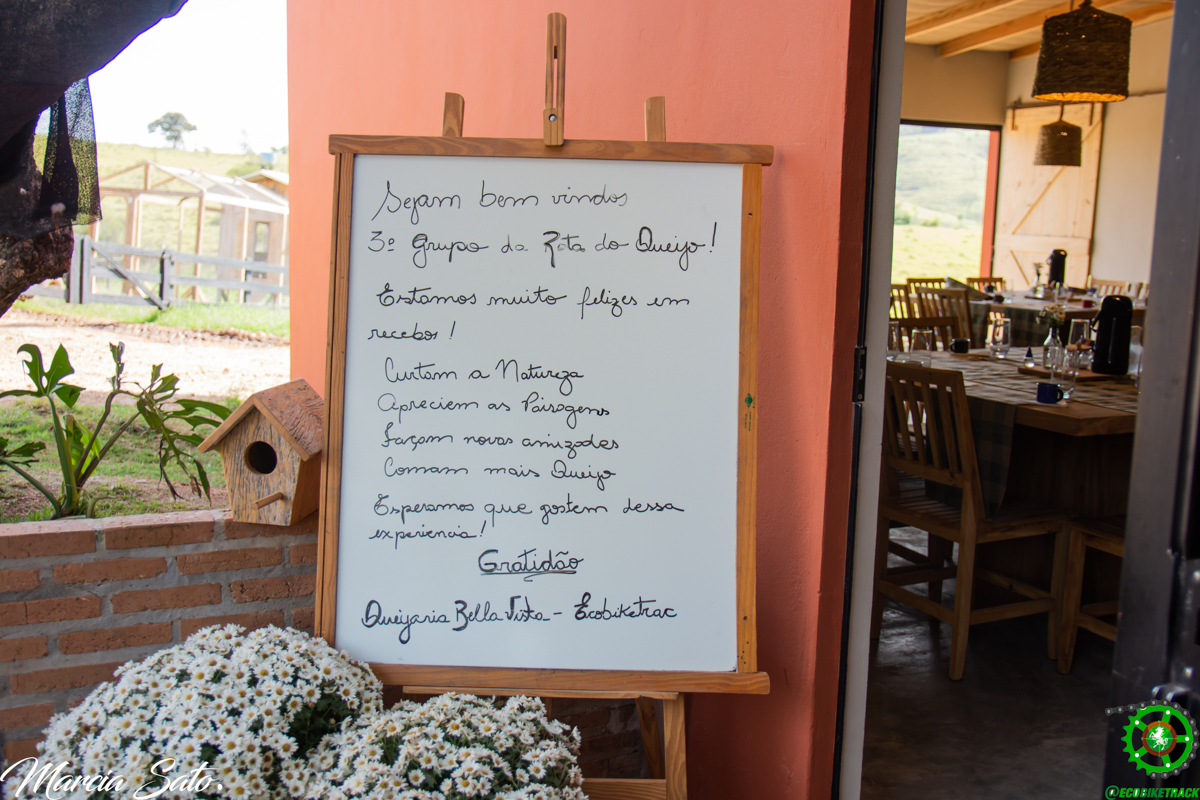 Sejam bem vindos
3º Grupo da Rota do Queijo!
Estamos muito felizes em
recebos!
Curtam a Natureza
Apreciem as Paisagens
Façam novas amizades
Comam mais Queijo
Esperamos que gostem dessa
experiencia!
Gratidão
Queijaria Bella Vista - Ecobiketrac
Marcia Sato.
@ECOBIKETRACK